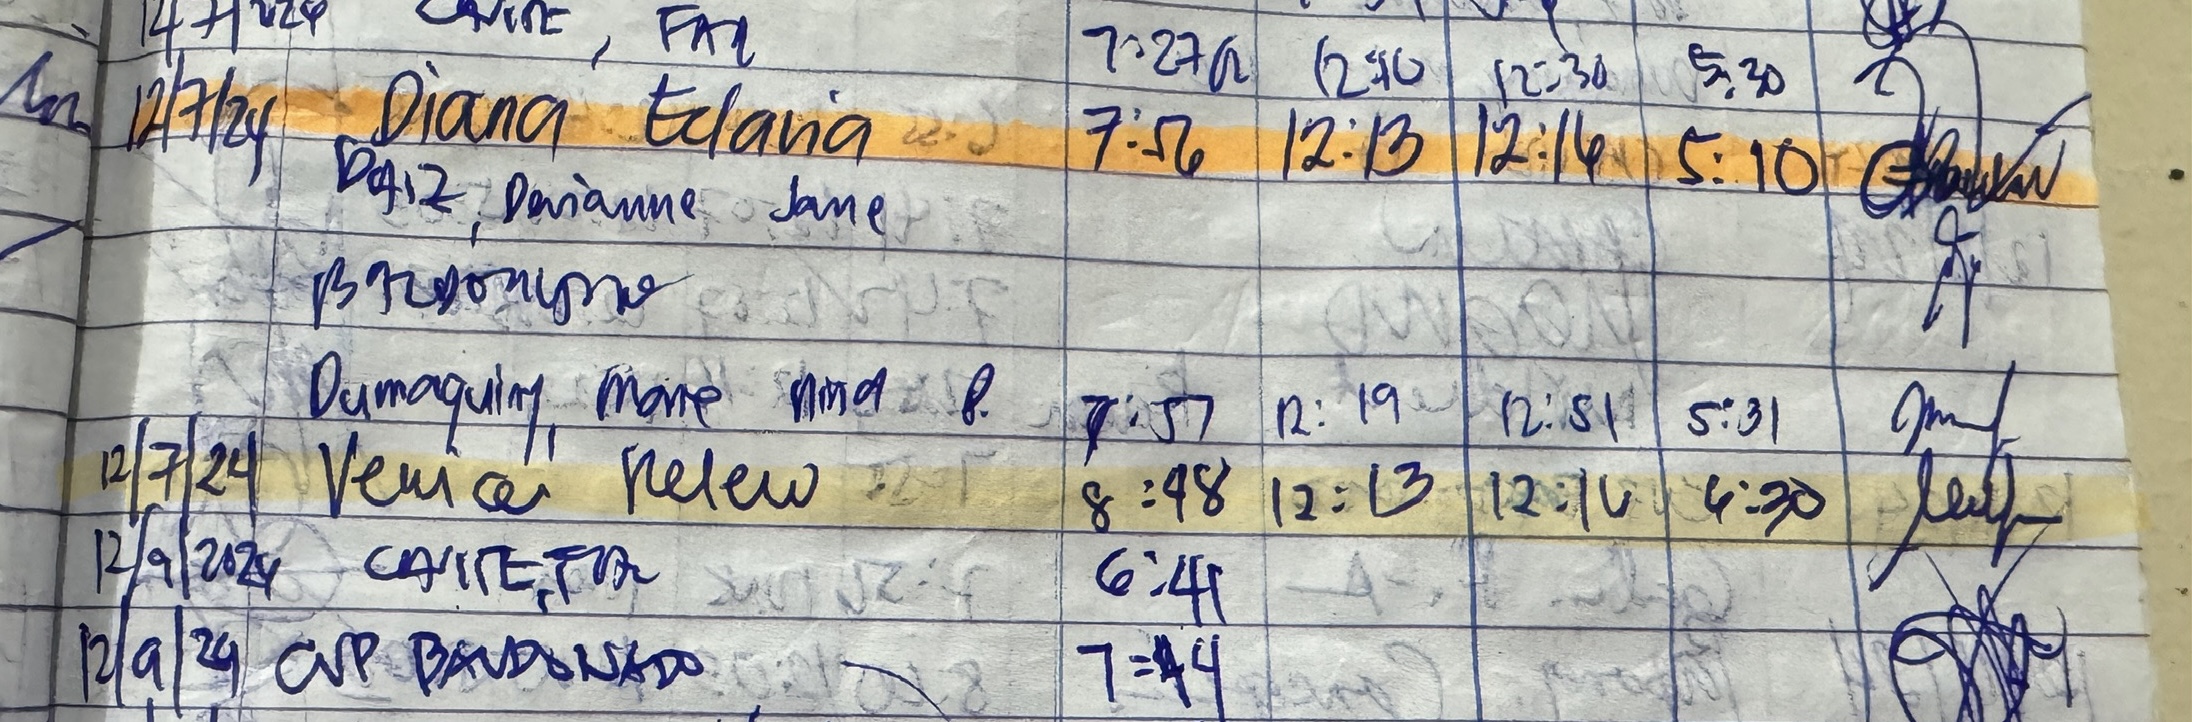 12/7/2024 CAVITE, FAR 7:27A 12:10 12:30 5:30
12/7/24 Diana Eclavia 7:56 12:13 12:14 5:10
Daiz, Darianne Jane
Dumaquing, Marie Nina P. 7:57 12:19 12:51 5:31
12/7/24 Venice 8:48 12:13 12:14 4:30
12/9/2024 CAVITE, 6:41
12/9/24 CVP BANDONADO 7:44